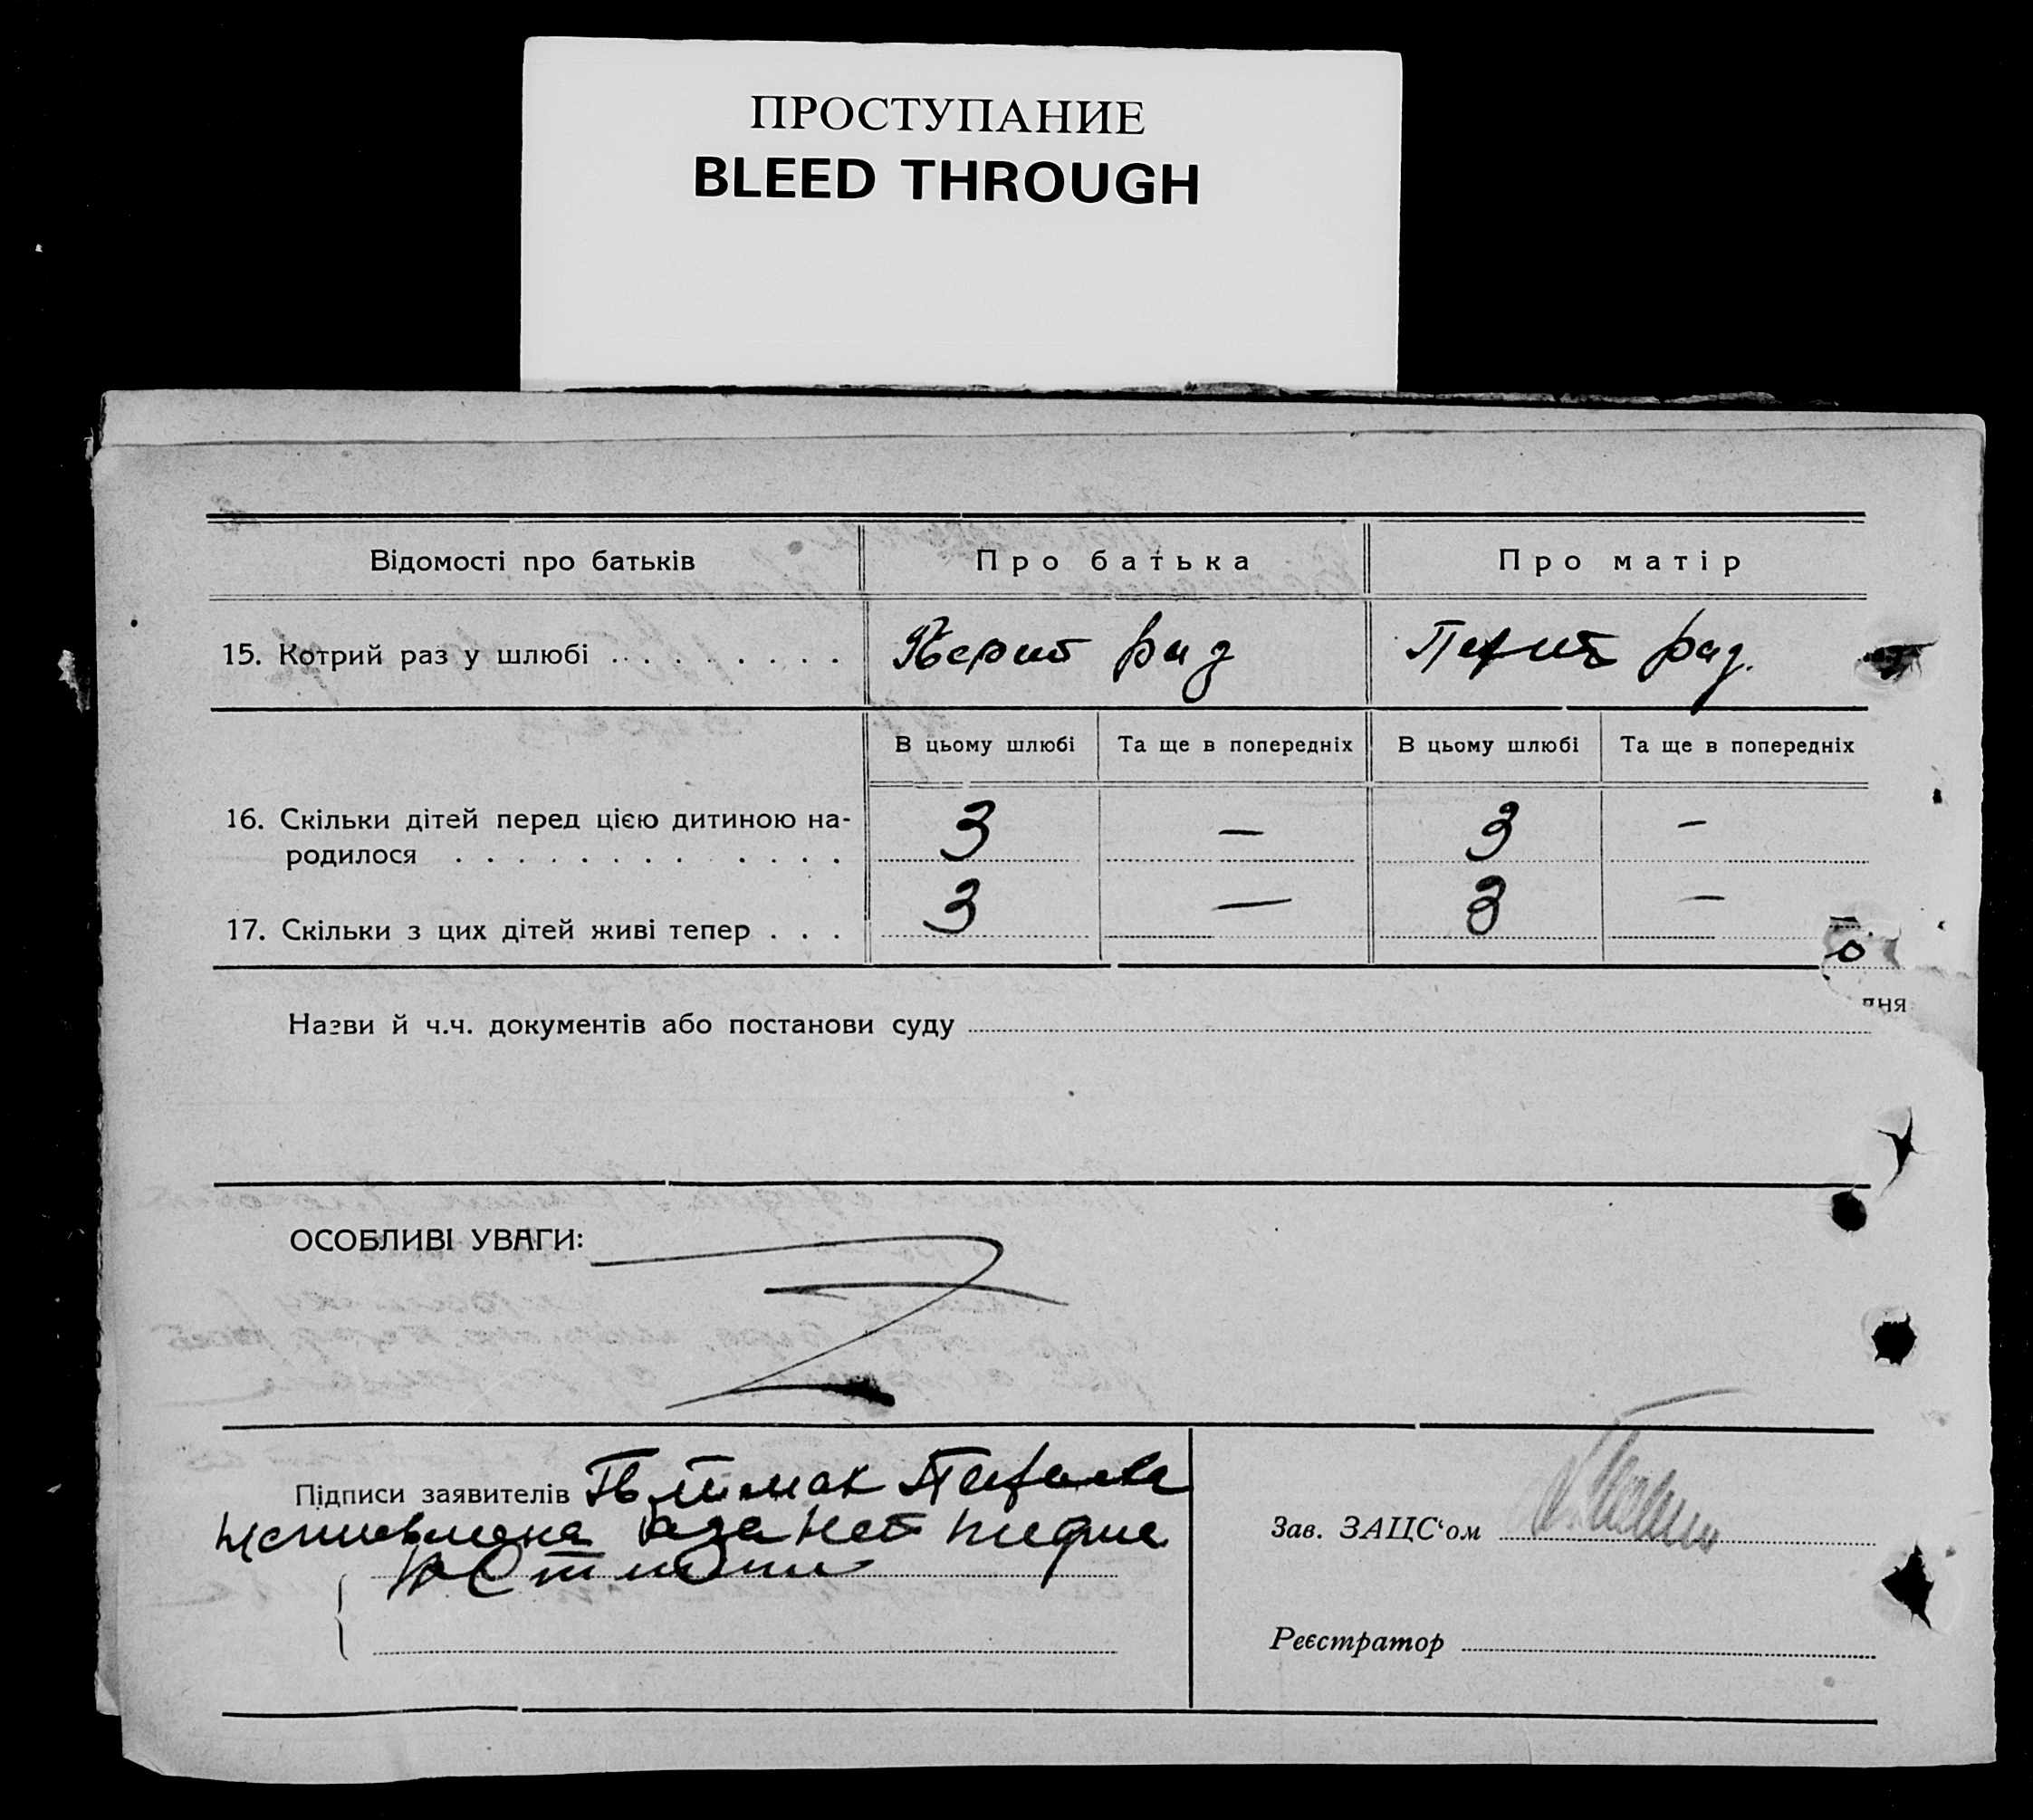 ПРОСТУПАНИЕ
BLEED THROUGH
Відомості про батьків Про батька Про матір
15. Котрий раз у шлюбі . . . . . . . . . раз раз.
В цьому шлюбі Та ще в попередніх В цьому шлюбі Та ще в попередніх
16. Скільки дітей перед цією дитиною на-
родилося . . . . . . . . . . . . . 3 — 3 —
17. Скільки з цих дітей живі тепер . . . 3 — 3 —
дня
Назви й ч.ч. документів або постанови суду
ОСОБЛИВІ УВАГИ:
Підписи заявителів
Зав. ЗАЦС‘ом
Реєстратор